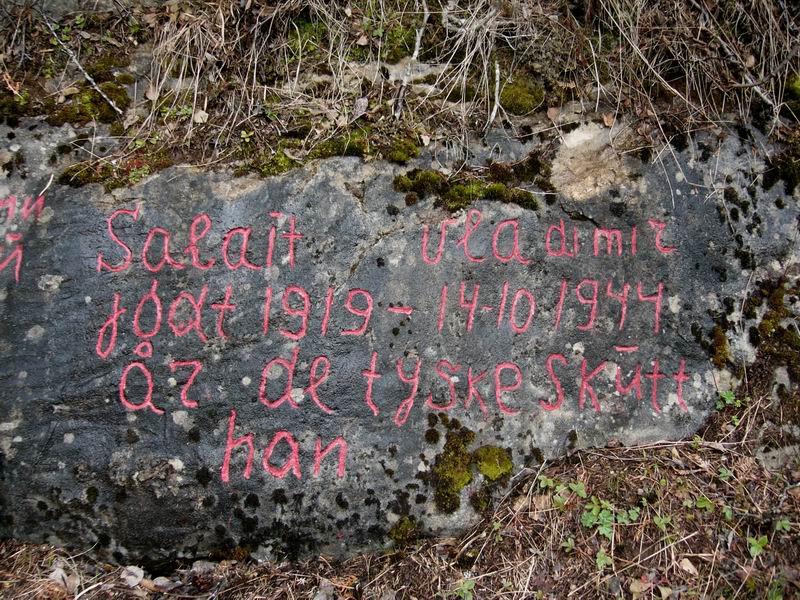 Salait Vladimir
födt 1919 - 14-10 1944
år de tyske skūtt
han